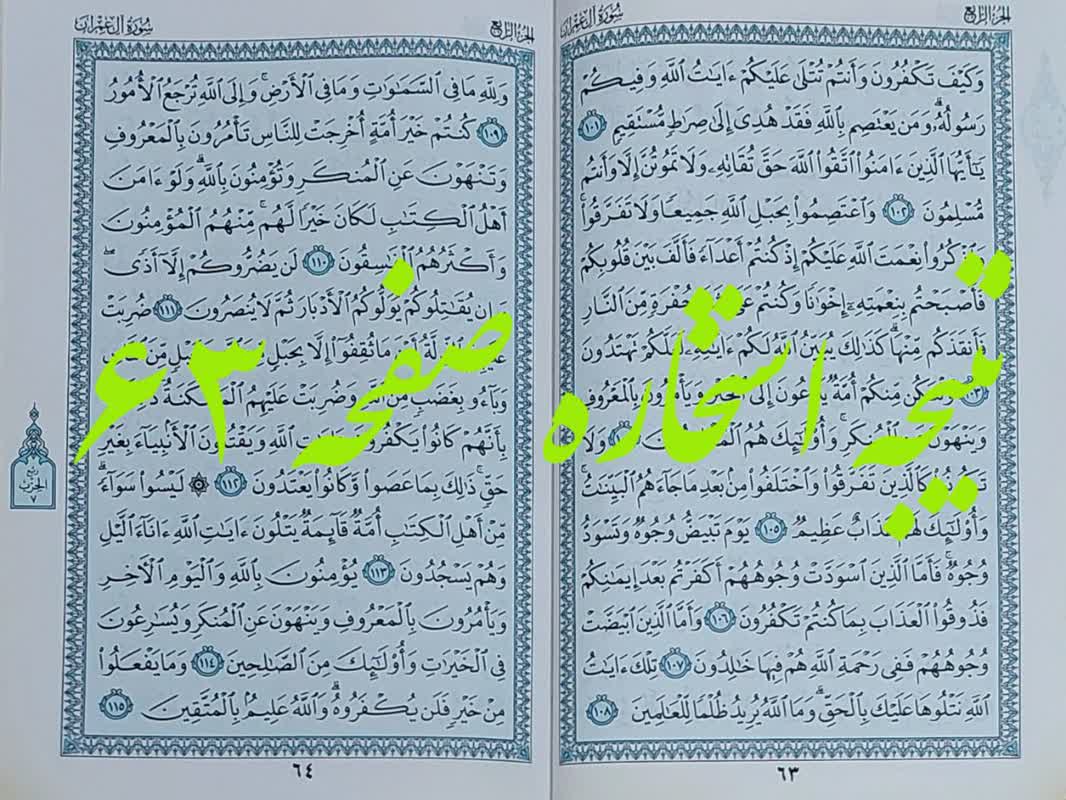 الجزء الرابع
سورة آل عمران
وَكَيْفَ تَكْفُرُونَ وَأَنتُمْ تُتْلَىٰ عَلَيْكُمْ ءَايَٰتُ ٱللَّهِ وَفِيكُمْ
رَسُولُهُۥ وَمَن يَعْتَصِم بِٱللَّهِ فَقَدْ هُدِىَ إِلَىٰ صِرَٰطٍ مُّسْتَقِيمٍ ١٠١
يَٰٓأَيُّهَا ٱلَّذِينَ ءَامَنُوا۟ ٱتَّقُوا۟ ٱللَّهَ حَقَّ تُقَاتِهِۦ وَلَا تَمُوتُنَّ إِلَّا وَأَنتُم
مُّسْلِمُونَ ١٠٢ وَٱعْتَصِمُوا۟ بِحَبْلِ ٱللَّهِ جَمِيعًا وَلَا تَفَرَّقُوا۟ۚ
وَٱذْكُرُوا۟ نِعْمَتَ ٱللَّهِ عَلَيْكُمْ إِذْ كُنتُمْ أَعْدَآءً فَأَلَّفَ بَيْنَ قُلُوبِكُمْ
فَأَصْبَحْتُم بِنِعْمَتِهِۦٓ إِخْوَٰنًا وَكُنتُمْ عَلَىٰ حُفْرَةٍ مِّنَ ٱلنَّارِ
فَأَنقَذَكُم مِّنْهَاۗ كَذَٰلِكَ يُبَيِّنُ ٱللَّهُ لَكُمْ ءَايَٰتِهِۦ لَعَلَّكُمْ تَهْتَدُونَ
١٠٣ وَلْتَكُن مِّنكُمْ أُمَّةٌ يَدْعُونَ إِلَى ٱلْخَيْرِ وَيَأْمُرُونَ بِٱلْمَعْرُوفِ
وَيَنْهَوْنَ عَنِ ٱلْمُنكَرِۚ وَأُو۟لَٰٓئِكَ هُمُ ٱلْمُفْلِحُونَ ١٠٤ وَلَا
تَكُونُوا۟ كَٱلَّذِينَ تَفَرَّقُوا۟ وَٱخْتَلَفُوا۟ مِنۢ بَعْدِ مَا جَآءَهُمُ ٱلْبَيِّنَٰتُۚ
وَأُو۟لَٰٓئِكَ لَهُمْ عَذَابٌ عَظِيمٌ ١٠٥ يَوْمَ تَبْيَضُّ وُجُوهٌ وَتَسْوَدُّ
وُجُوهٌۚ فَأَمَّا ٱلَّذِينَ ٱسْوَدَّتْ وُجُوهُهُمْ أَكَفَرْتُم بَعْدَ إِيمَٰنِكُمْ
فَذُوقُوا۟ ٱلْعَذَابَ بِمَا كُنتُمْ تَكْفُرُونَ ١٠٦ وَأَمَّا ٱلَّذِينَ ٱبْيَضَّتْ
وُجُوهُهُمْ فَفِى رَحْمَةِ ٱللَّهِ هُمْ فِيهَا خَٰلِدُونَ ١٠٧ تِلْكَ ءَايَٰتُ
ٱللَّهِ نَتْلُوهَا عَلَيْكَ بِٱلْحَقِّۗ وَمَا ٱللَّهُ يُرِيدُ ظُلْمًا لِّلْعَٰلَمِينَ ١٠٨
٦٣
الجزء الرابع
سورة آل عمران
وَلِلَّهِ مَا فِى ٱلسَّمَٰوَٰتِ وَمَا فِى ٱلْأَرْضِۚ وَإِلَى ٱللَّهِ تُرْجَعُ ٱلْأُمُورُ
١٠٩ كُنتُمْ خَيْرَ أُمَّةٍ أُخْرِجَتْ لِلنَّاسِ تَأْمُرُونَ بِٱلْمَعْرُوفِ
وَتَنْهَوْنَ عَنِ ٱلْمُنكَرِ وَتُؤْمِنُونَ بِٱللَّهِۗ وَلَوْ ءَامَنَ
أَهْلُ ٱلْكِتَٰبِ لَكَانَ خَيْرًا لَّهُمۚ مِّنْهُمُ ٱلْمُؤْمِنُونَ
وَأَكْثَرُهُمُ ٱلْفَٰسِقُونَ ١١٠ لَن يَضُرُّوكُمْ إِلَّآ أَذًىۖ
وَإِن يُقَٰتِلُوكُمْ يُوَلُّوكُمُ ٱلْأَدْبَارَ ثُمَّ لَا يُنصَرُونَ ١١١ ضُرِبَتْ
عَلَيْهِمُ ٱلذِّلَّةُ أَيْنَ مَا ثُقِفُوٓا۟ إِلَّا بِحَبْلٍ مِّنَ ٱللَّهِ وَحَبْلٍ مِّنَ ٱلنَّاسِ
وَبَآءُو بِغَضَبٍ مِّنَ ٱللَّهِ وَضُرِبَتْ عَلَيْهِمُ ٱلْمَسْكَنَةُۚ ذَٰلِكَ
بِأَنَّهُمْ كَانُوا۟ يَكْفُرُونَ بِـَٔايَٰتِ ٱللَّهِ وَيَقْتُلُونَ ٱلْأَنۢبِيَآءَ بِغَيْرِ
حَقٍّۚ ذَٰلِكَ بِمَا عَصَوا۟ وَّكَانُوا۟ يَعْتَدُونَ ١١٢ ۞ لَيْسُوا۟ سَوَآءًۗ
مِّنْ أَهْلِ ٱلْكِتَٰبِ أُمَّةٌ قَآئِمَةٌ يَتْلُونَ ءَايَٰتِ ٱللَّهِ ءَانَآءَ ٱلَّيْلِ
وَهُمْ يَسْجُدُونَ ١١٣ يُؤْمِنُونَ بِٱللَّهِ وَٱلْيَوْمِ ٱلْءَاخِرِ
وَيَأْمُرُونَ بِٱلْمَعْرُوفِ وَيَنْهَوْنَ عَنِ ٱلْمُنكَرِ وَيُسَٰرِعُونَ
فِى ٱلْخَيْرَٰتِ وَأُو۟لَٰٓئِكَ مِنَ ٱلصَّٰلِحِينَ ١١٤ وَمَا يَفْعَلُوا۟
مِنْ خَيْرٍ فَلَن يُكْفَرُوهُۗ وَٱللَّهُ عَلِيمٌۢ بِٱلْمُتَّقِينَ ١١٥
٦٤
ربع
الحزب
٧
نتیجه استخاره صفحه ۶۳